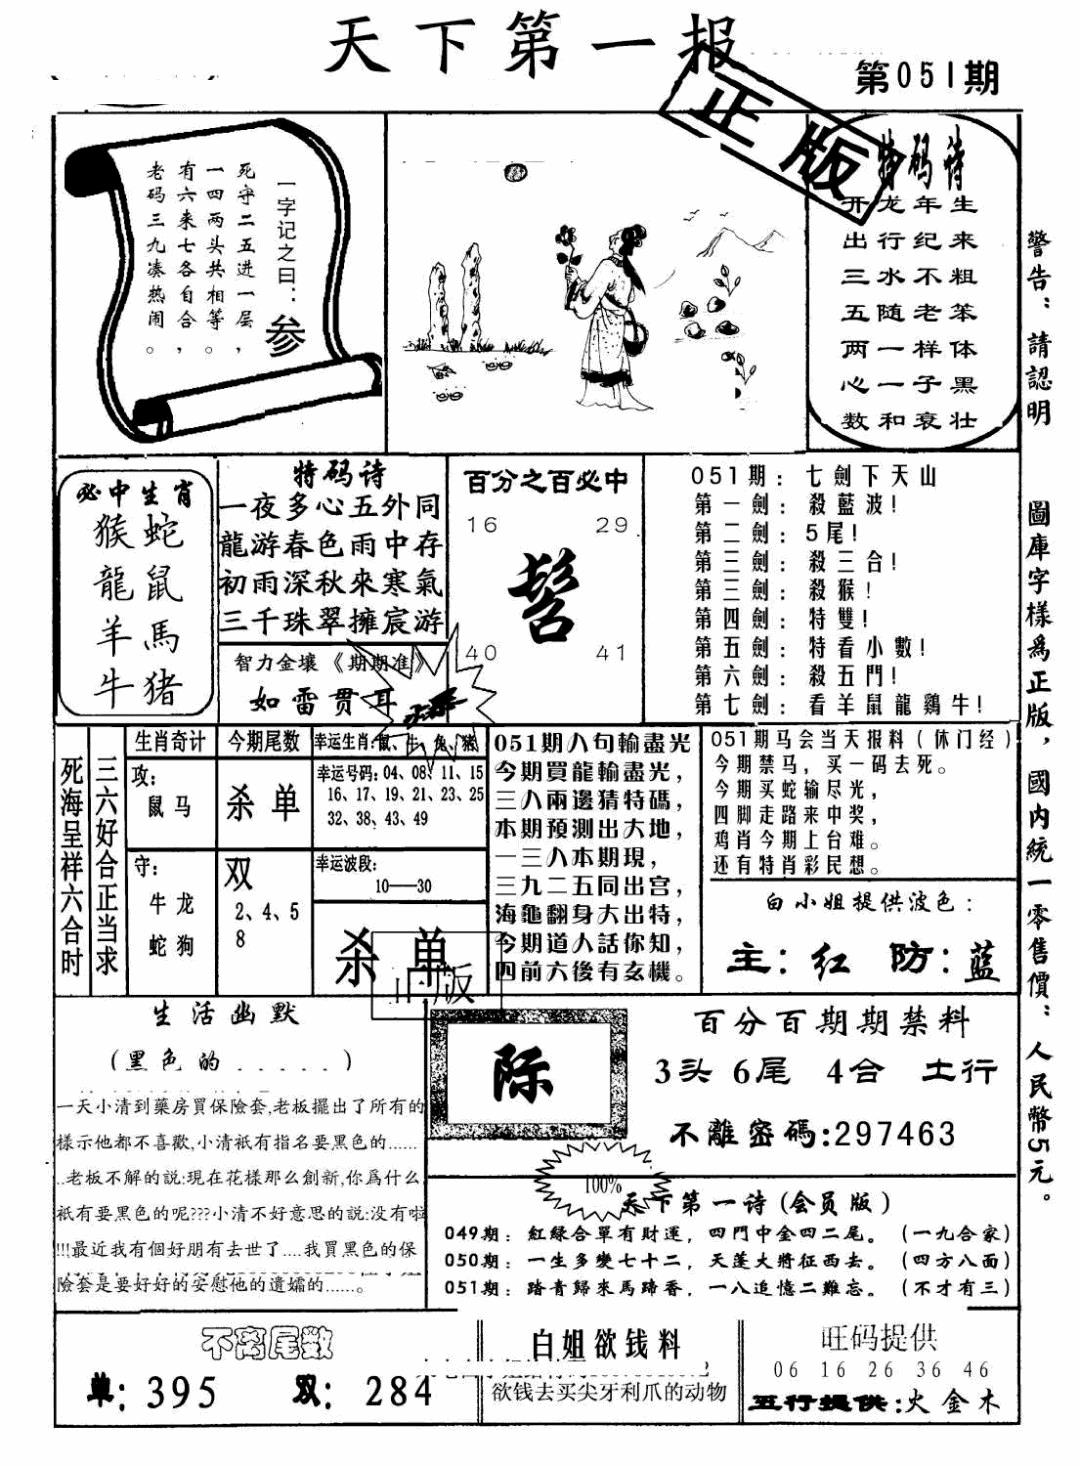 天下第一报
第051期
正版
一字记之曰：参
死守二五进一层，
一四两头共相等。
有六来七各自合，
老码三九凑热闹。
特码诗
开龙年生
出行纪来
三水不粗
五随老笨
两一样体
心一子黑
数和衰壮
警告：請認明 圖庫字樣爲正版，國内統一零售價：人民幣5元。
必中生肖
猴蛇
龍鼠
羊馬
牛猪
特码诗
一夜多心五外同
龍游春色雨中存
初雨深秋來寒氣
三千珠翠擁宸游
智力金壤《期期准》
如雷贯耳
百分之百必中
16 29
髻
40 41
051期：七劍下天山
第一劍：殺藍波！
第二劍：5尾！
第三劍：殺三合！
第三劍：殺猴！
第四劍：特雙！
第五劍：特看小數！
第六劍：殺五門！
第七劍：看羊鼠龍鷄牛！
死海呈祥六合时
三六好合正当求
生肖奇计
攻：
鼠马
守：
牛龙
蛇狗
今期尾数
杀单
双
2、4、5
8
幸运生肖:鼠、牛、兔、猴
幸运号码:04、08、11、15
16、17、19、21、23、25
32、38、43、49
幸运波段:
10——30
杀单
正版
051期八句輸盡光
今期買龍輸盡光，
三八兩邊猜特碼，
本期預測出大地，
一三八本期現，
三九二五同出宫，
海龜翻身大出特，
今期道人話你知，
四前六後有玄機。
051期马会当天报料（休门经）
今期禁马，买一码去死。
今期买蛇输尽光，
四脚走路来中奖，
鸡肖今期上台难。
还有特肖彩民想。
白小姐提供波色：
主：红 防：蓝
生活幽默
（黑色的......）
一天小清到藥房買保險套,老板擺出了所有的
樣示他都不喜歡,小清衹有指名要黑色的......
..老板不解的説:現在花樣那么創新,你爲什么
衹有要黑色的呢???小清不好意思的説:没有啦
!!!最近我有個好朋有去世了....我買黑色的保
險套是要好好的安慰他的遺孀的......。
际
百分百期期禁料
3头 6尾 4合 土行
不離密碼:297463
100%
天下第一诗(会员版)
049期：紅緑合單有財運，四門中金四二尾。（一九合家）
050期：一生多變七十二，天蓬大將征西去。（四方八面）
051期：踏青歸來馬蹄香，一八追憶二難忘。（不才有三）
不离尾数
单：395 双：284
白姐欲钱料
欲钱去买尖牙利爪的动物
旺码提供
06 16 26 36 46
五行提供:火金木